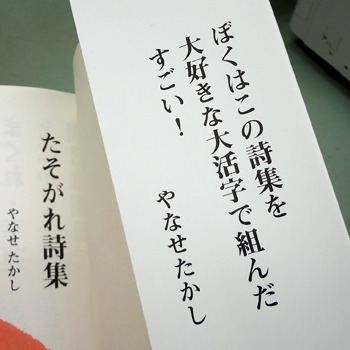 ぼくはこの詩集を
大好きな大活字で組んだ
すごい！
やなせたかし
たそがれ詩集
やなせたかし